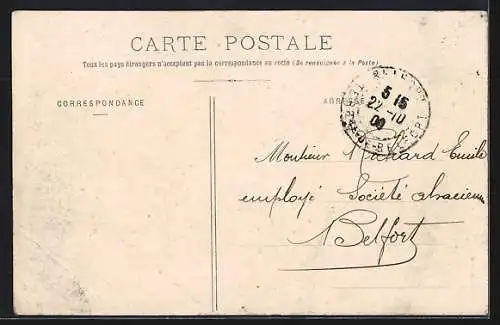 CARTE POSTALE
Tous les pays étrangers n'acceptent pas la correspondance au recto (Se renseigner à la Poste)
CORRESPONDANCE
ADRESSE
BELFORT
5 15
22 - 10
09
TERRRE-DE-BELFORT
Monsieur Emile
employé Société alsacienne
Belfort